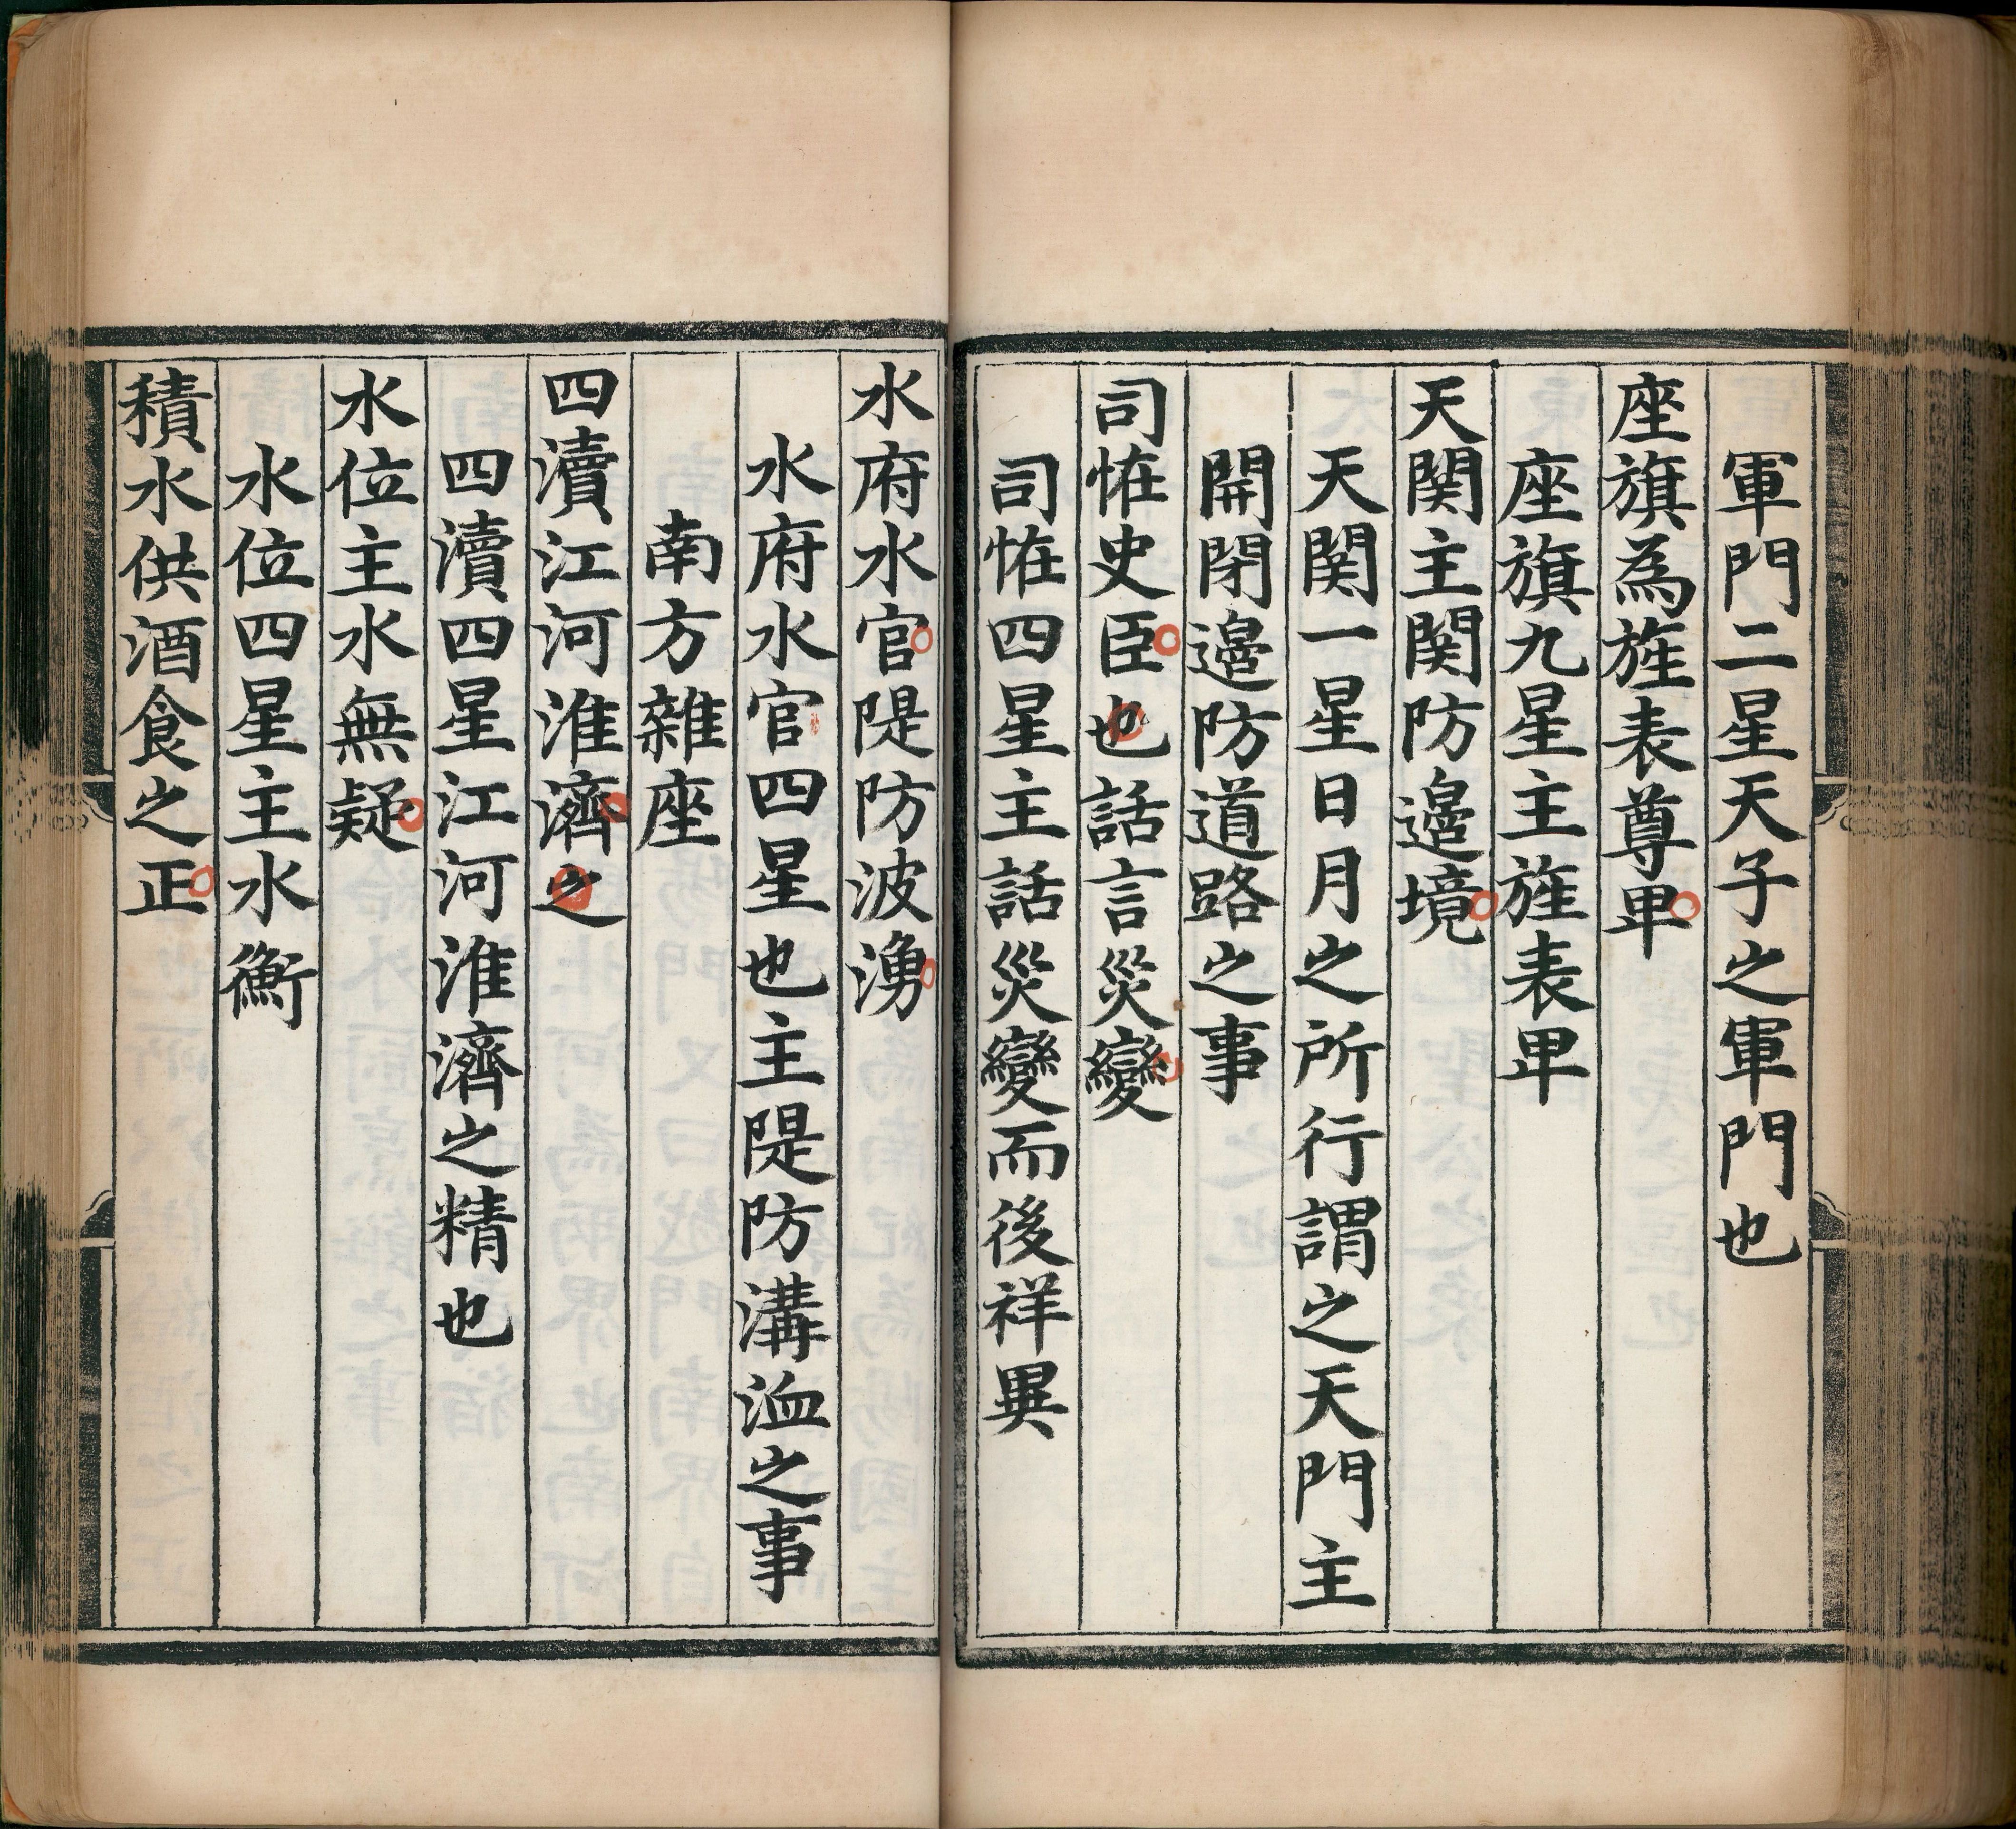 軍門二星天子之軍門也
座旗為旌表尊𤰞
座旗九星主旌表𤰞
天関主関防邊境
天関一星日月之所行謂之天門主
開閉邊防道路之事
司恠史臣也話言災變
司恠四星主話災變而後祥異
水府水官隄防波湧
水府水官四星也主隄防溝洫之事
南方雜座
四瀆江河淮濟之
四瀆四星江河淮濟之精也
水位主水無疑
水位四星主水衡
積水供酒食之正